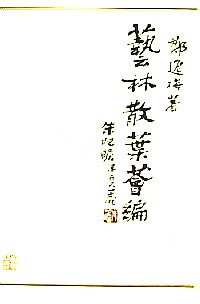 鄭逸梅著
藝林散葉薈編
朱屺瞻